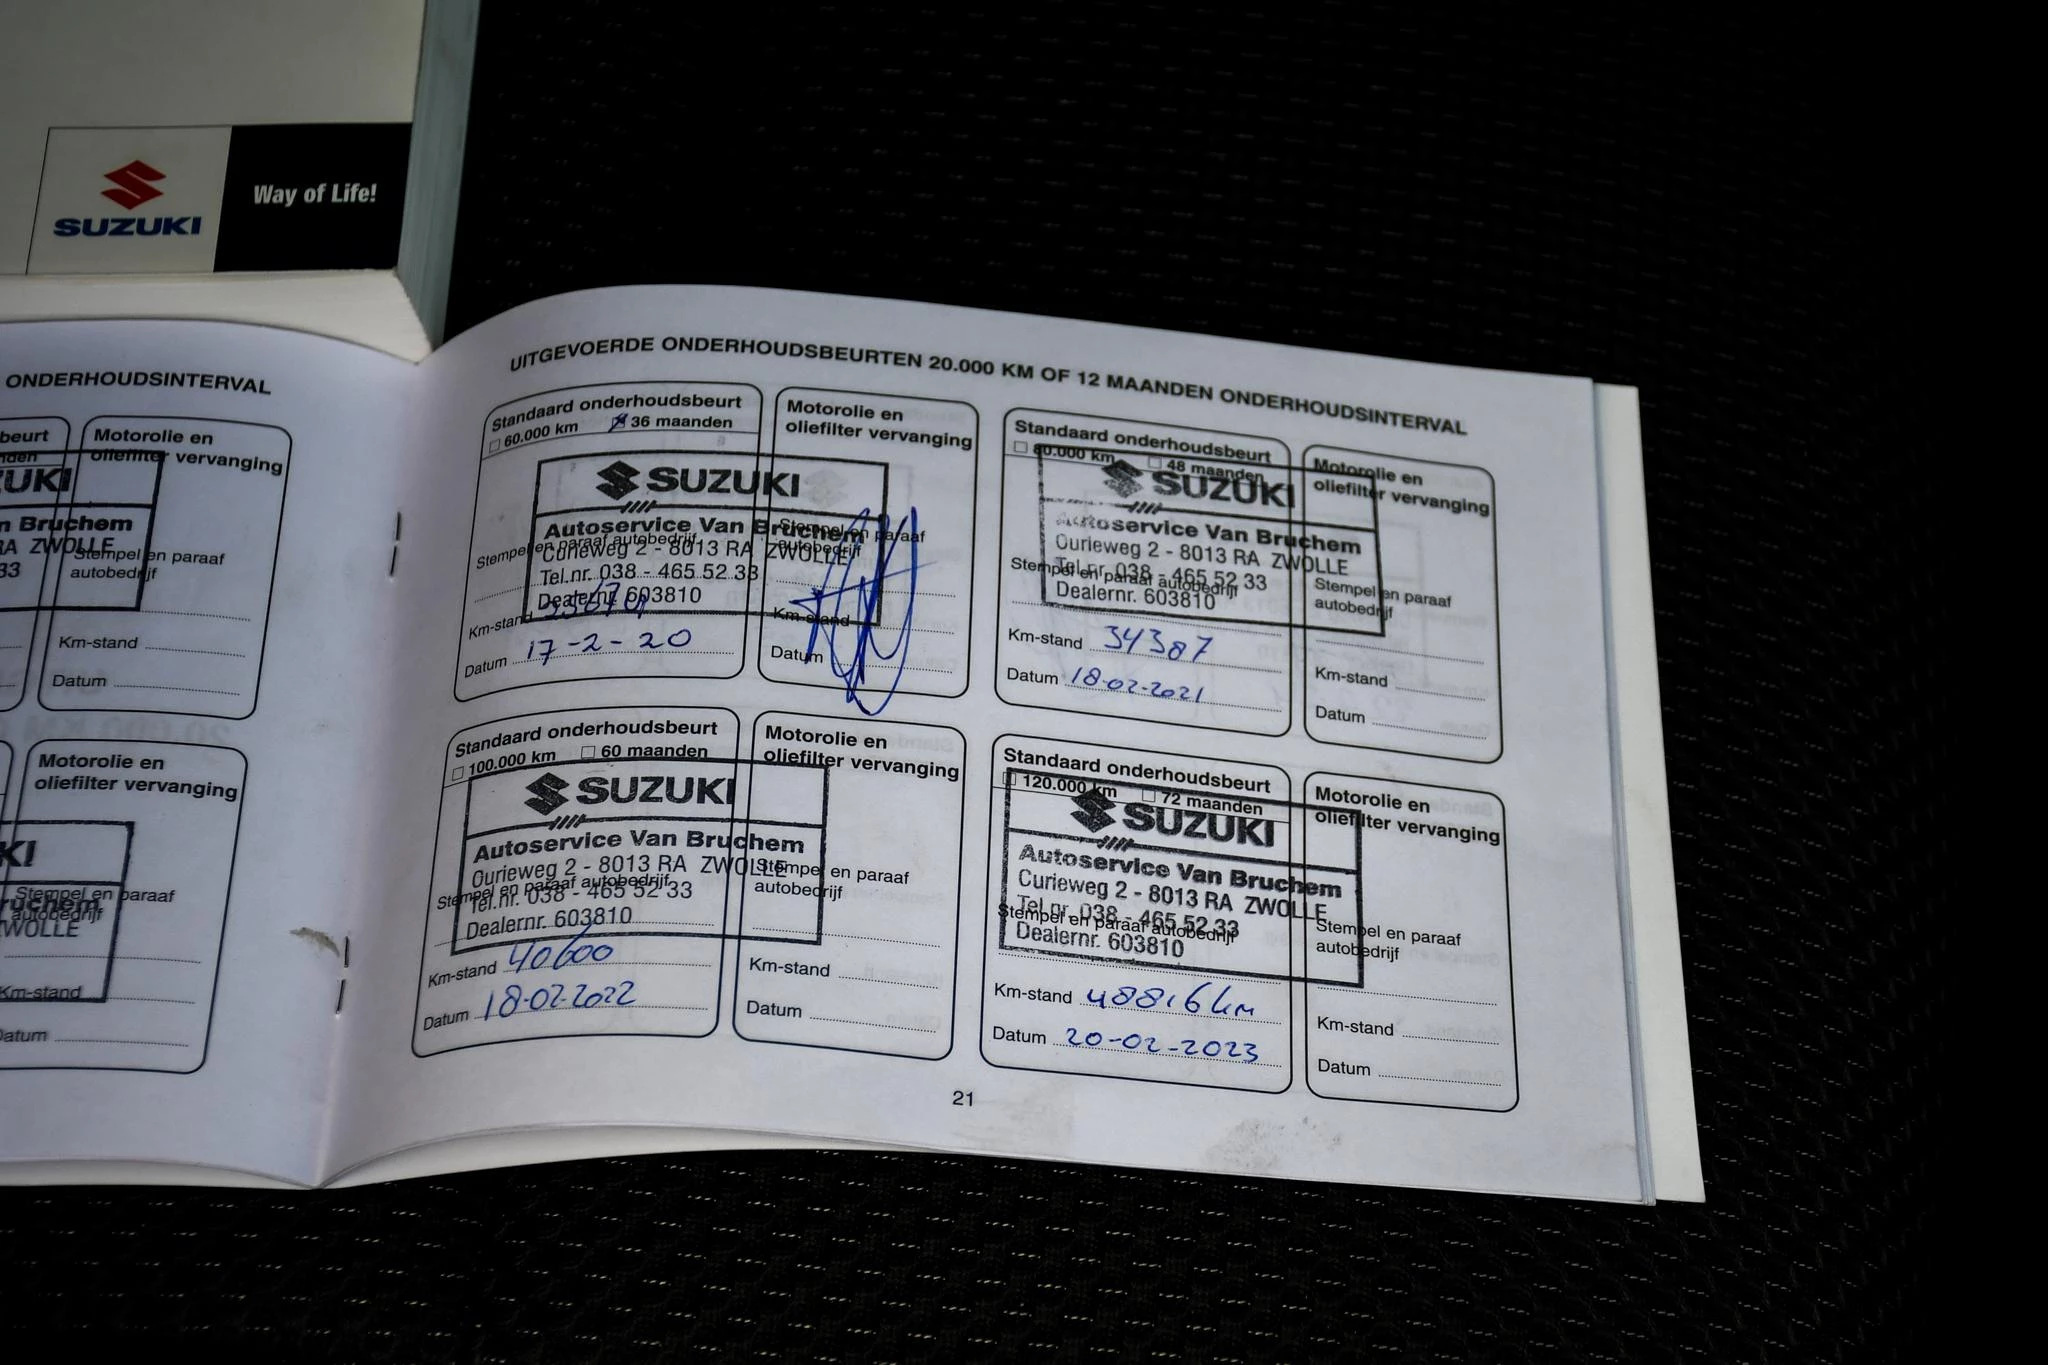 SUZUKI
Way of Life!
ONDERHOUDSINTERVAL
beurt
Motorolie en
oliefilter vervanging
n Bruchem
RA ZWOLLE
33
Stempel en paraaf
autobedrijf
Km-stand
Datum
Motorolie en
oliefilter vervanging
Stempel en paraaf
autobedrijf
ZWOLLE
Km-stand
Datum
UITGEVOERDE ONDERHOUDSBEURTEN 20.000 KM OF 12 MAANDEN ONDERHOUDSINTERVAL
Standaard onderhoudsbeurt
60.000 km 36 maanden
SUZUKI
Autoservice Van Bruchem
Curieweg 2 - 8013 RA ZWOLLE
Stempel en paraaf autobedrijf
Tel.nr. 038 - 465 52 33
Dealernr. 603810
Km-stand
Datum 17-2-20
Motorolie en
oliefilter vervanging
Stempel en paraaf
autobedrijf
Km-stand
Datum
Standaard onderhoudsbeurt
80.000 km 48 maanden
SUZUKI
Autoservice Van Bruchem
Curieweg 2 - 8013 RA ZWOLLE
Tel.nr. 038 - 465 52 33
Stempel en paraaf autobedrijf
Dealernr. 603810
Km-stand 34387
Datum 18-02-2021
Motorolie en
oliefilter vervanging
Stempel en paraaf
autobedrijf
Km-stand
Datum
Standaard onderhoudsbeurt
100.000 km 60 maanden
SUZUKI
Autoservice Van Bruchem
Curieweg 2 - 8013 RA ZWOLLE
Stempel en paraaf autobedrijf
Tel.nr. 038 - 465 52 33
Dealernr. 603810
Km-stand 40600
Datum 18-02-2022
Motorolie en
oliefilter vervanging
Stempel en paraaf
autobedrijf
Km-stand
Datum
Standaard onderhoudsbeurt
120.000 km 72 maanden
SUZUKI
Autoservice Van Bruchem
Curieweg 2 - 8013 RA ZWOLLE
Tel.nr. 038 - 465 52 33
Stempel en paraaf autobedrijf
Dealernr. 603810
Km-stand 48816 km
Datum 20-02-2023
Motorolie en
oliefilter vervanging
Stempel en paraaf
autobedrijf
Km-stand
Datum
21